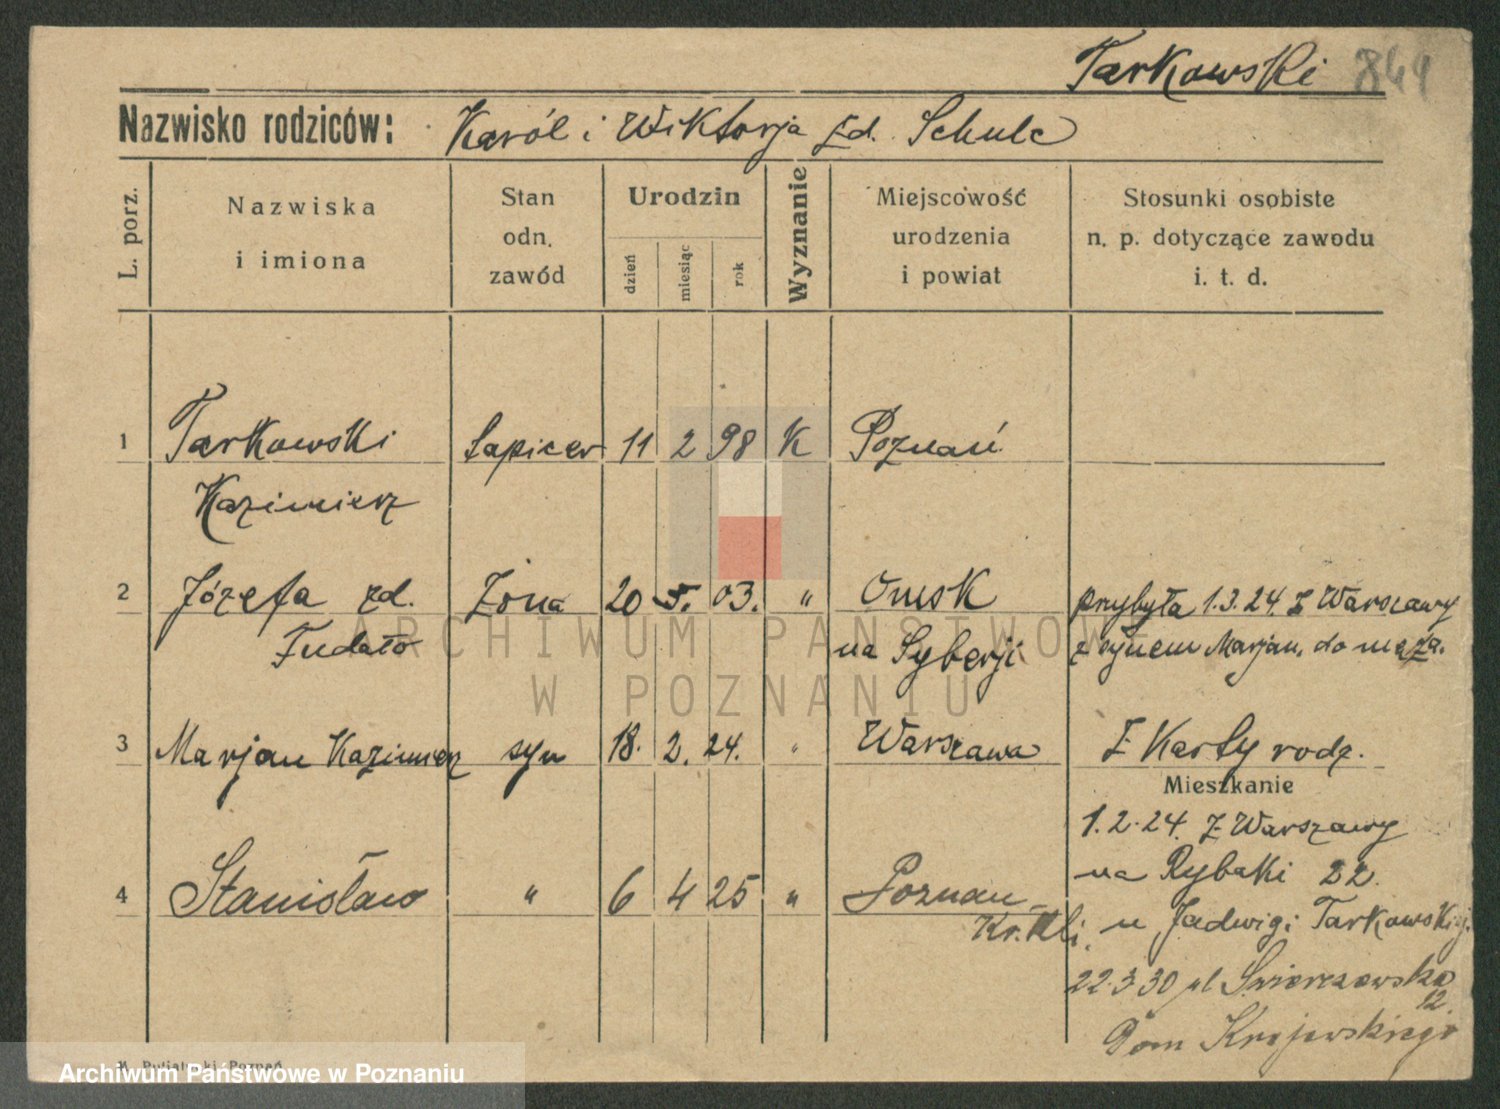 Tarkowski 844
Nazwisko rodziców: Karól i Wiktorja zd. Schulc
L. porz.
Nazwiska
i imiona
Stan
odn.
zawód
Urodzin
dzień
miesiąc
rok
Wyznanie
Miejscowość
urodzenia
i powiat
Stosunki osobiste
n. p. dotyczące zawodu
i. t. d.
1 Tarkowski Sapicer 11 2 98 K Poznań
Kazimierz
2 Józefa zd. Żona 20 5. 03. " Omsk przybyła 1.3.24. z Warszawy
Fudało na Syberji z synem Marjan. do męża.
3 Marjan Kazimierz syn 18. 2. 24. " Warszawa Z Karty rodz.
Mieszkanie
1.2.24. z Warszawy
na Rybaki 22.
4 Stanisław " 6 4 25 " Poznań
u Jadwigi Tarkowskiej
22.3.30 ul Świerczewska
12.
Dom Krajewskiego
ARCHIWUM PAŃSTWOWE
W POZNANIU
Poznań
Archiwum Państwowe w Poznaniu